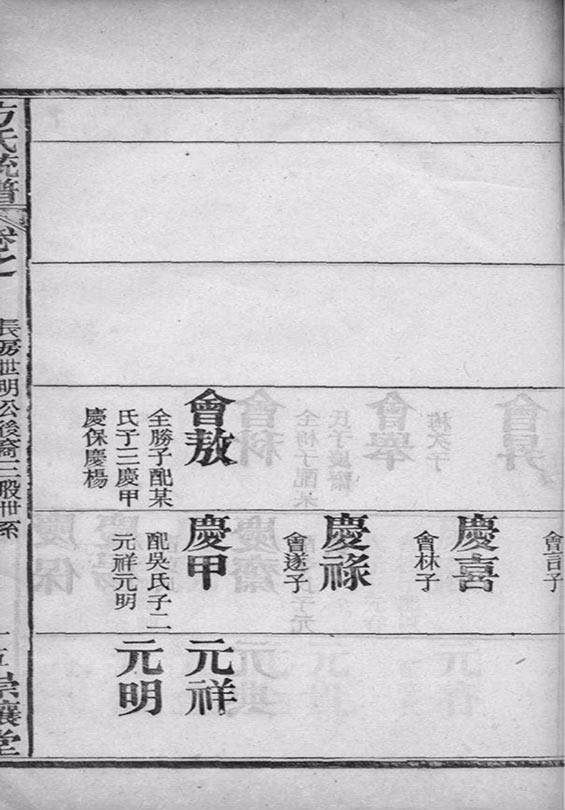 會敖
全勝子配某
氏子三慶甲
慶保慶楊
會言子
慶喜
會林子
慶祿
會遂子
慶甲
配吳氏子二
元祥元明
元祥
元明
方氏統譜
卷之
長房世明公後裔三股世系
堂